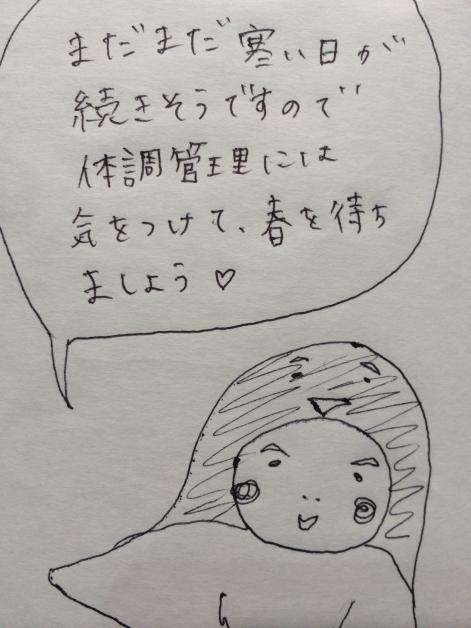 まだまだ寒い日が
続きそうですので
体調管理には
気をつけて、春を待ち
ましょう♡